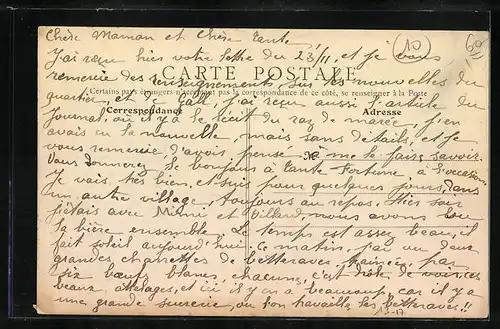 Chère Maman et Chère Tante
J'ai reçu hier votre lettre du 23/11, et je vous
remercie des renseignements, sur les nouvelles du
CARTE POSTALE
Certains pays étrangers n'acceptent pas la correspondance de ce côté, se renseigner à la Poste
quartier, et de j'ai reçu aussi l'article du
Correspondance
Adresse
journal, où il y a le récit du raz de marée, j'en
avais eu la nouvelle, mais sans détails, et je
vous remercie d'avois pensé à me le faire savoir.
Vous donnerez le bonjour à Tante Fortune à l'occasion
Je vais très bien et suis pour quelques jours dans
un autre village, toujours au repos. Hier soir
j'étais avec et Billard, nous avons bu
la bière ensemble. Le temps est assez beau, il
fait soleil aujourd'hui. Ce matin, j'ai vu deux
grandes charrettes de betteraves, trainées, par
six bœufs blancs, chacune, c'est de voir ces
beaux attelages, et ici il y en a beaucoup, car il y a
une grande sucrerie, où l'on travaille les betteraves!!
10
60